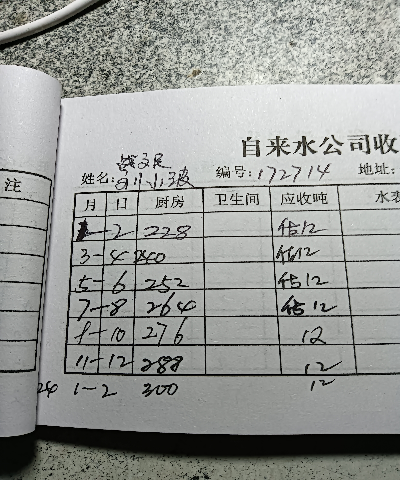 注
自来水公司收
姓名: 编号: 172714 地址:
月 日 厨房 卫生间 应收吨 水表
1-2 228 估12
3-4 240 估12
5-6 252 估12
7-8 264 估12
9-10 276 12
11-12 288 12
24 1-2 300 12